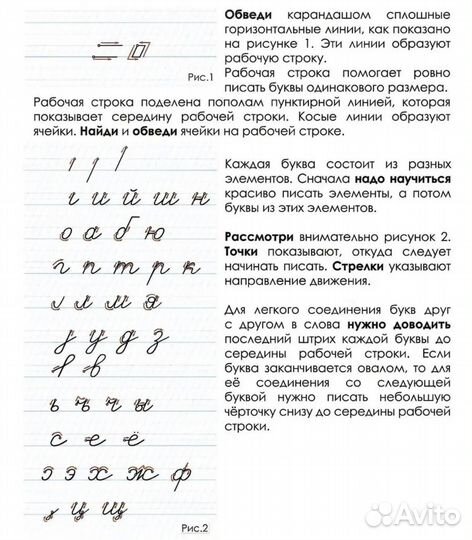 Обведи карандашом сплошные
горизонтальные линии, как показано
на рисунке 1. Эти линии образуют
рабочую строку.
Рис.1
Рабочая строка помогает ровно
писать буквы одинакового размера.
Рабочая строка поделена пополам пунктирной линией, которая
показывает середину рабочей строки. Косые линии образуют
ячейки. Найди и обведи ячейки на рабочей строке.
и й ш н
о а б ю
г п т р к
л м я
у д з
в
ь ъ ч ы
с е ё
э х ж ф
ц щ
Рис.2
Каждая буква состоит из разных
элементов. Сначала надо научиться
красиво писать элементы, а потом
буквы из этих элементов.
Рассмотри внимательно рисунок 2.
Точки показывают, откуда следует
начинать писать. Стрелки указывают
направление движения.
Для легкого соединения букв друг
с другом в слова нужно доводить
последний штрих каждой буквы до
середины рабочей строки. Если
буква заканчивается овалом, то для
её соединения со следующей
буквой нужно писать небольшую
чёрточку снизу до середины рабочей
строки.
Avito